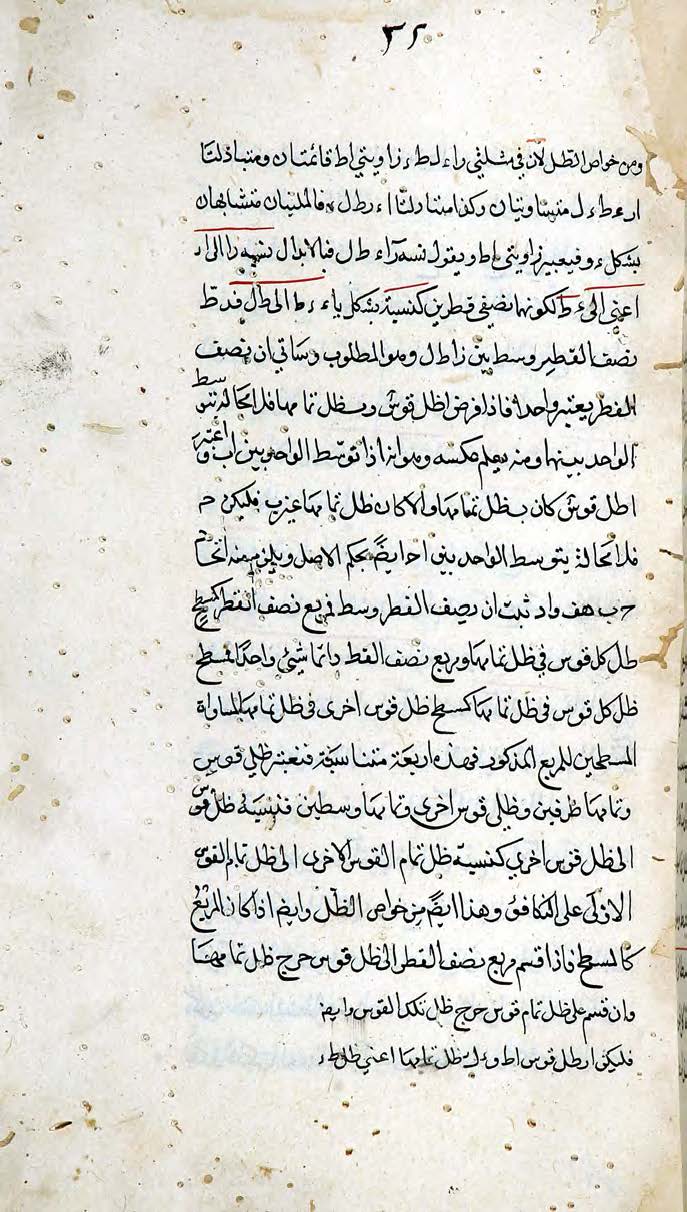 ٣٢
ومن خواص الظل لان في مثلثي راء لطء زاويتي اط قائمتان ومتبادلتا
ارء طءل متساويتان وكذا متبادلتا اءر طلء فالمثلثان متشابهان
بشكل ء و فيعبر زاويتي اط ويقول نسبه راء طل فبالابدال نسبه را الى اء
اعني الى ءط لكونهما نصفي قطرين كنسبة بشكل ياء ءط الى طل فقط
نصف القطر وسط بين را طل وهو المطلوب وسياتي ان نصف
القطر يعتبر واحدا فاذا فرض اظل قوس وب ظل تمامها فلامحالة يتوسط
الواحد بينهما ومنه يعلم عكسه وهو انه اذا توسط الواحد بين اب واعتبر
اظل قوس كان ب ظل تمامها والا كان ظل تمامها غير ب فليكن ح
فلامحالة يتوسط الواحد بين اح ايضا بحكم الاصل ويلزم منه اتحاد
ح ب هف واذ ثبت ان نصف القطر وسط فمربع نصف القطر كمسطح
ظل كل قوس في ظل تمامها ومربع نصف القطر دائما شيئ واحد فمسطح
ظل كل قوس في ظل تمامها كمسطح ظل قوس اخرى في ظل تمامها لمساواة
المسطحين للمربع المذكور فهذه اربعة متناسبة فنعتبر ظلي قوس
وتمامها طرفين وظلي قوس اخرى وتمامها وسطين فنسبة ظل قوس
الى ظل قوس اخرى كنسبة ظل تمام القوس الاخرى الى ظل تمام القوس
الاولى على التكافؤ وهذا ايضا من خواص الظل وايضا اذا كان المربع
كالمسطح فاذا قسم مربع نصف القطر الى ظل قوس خرج ظل تمامها
وان قسم على ظل تمام قوس خرج ظل تلك القوس وايضا
فليكن ار ظل قوس اط و ظل تمامها اعني ظل طء